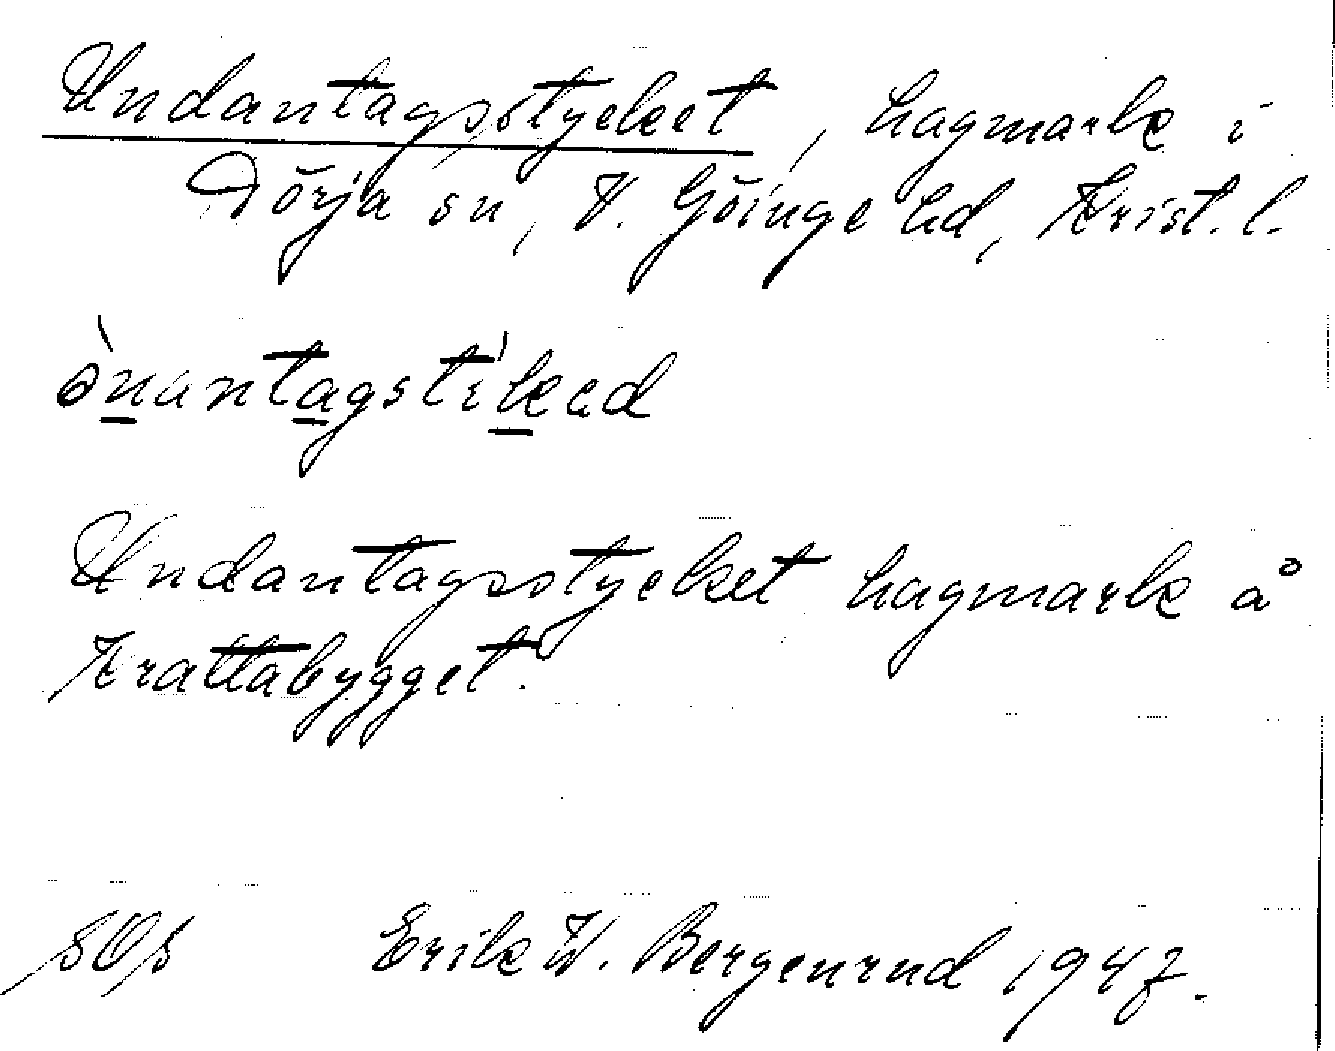 Undantagsstycket, hagmark i
Dörja sn, V. Göinge hd, Krist. l.
ònantagstikad
Undantagsstycket hagmark å
Krattabygget.
SOS Erik W. Bergenrud 1947.